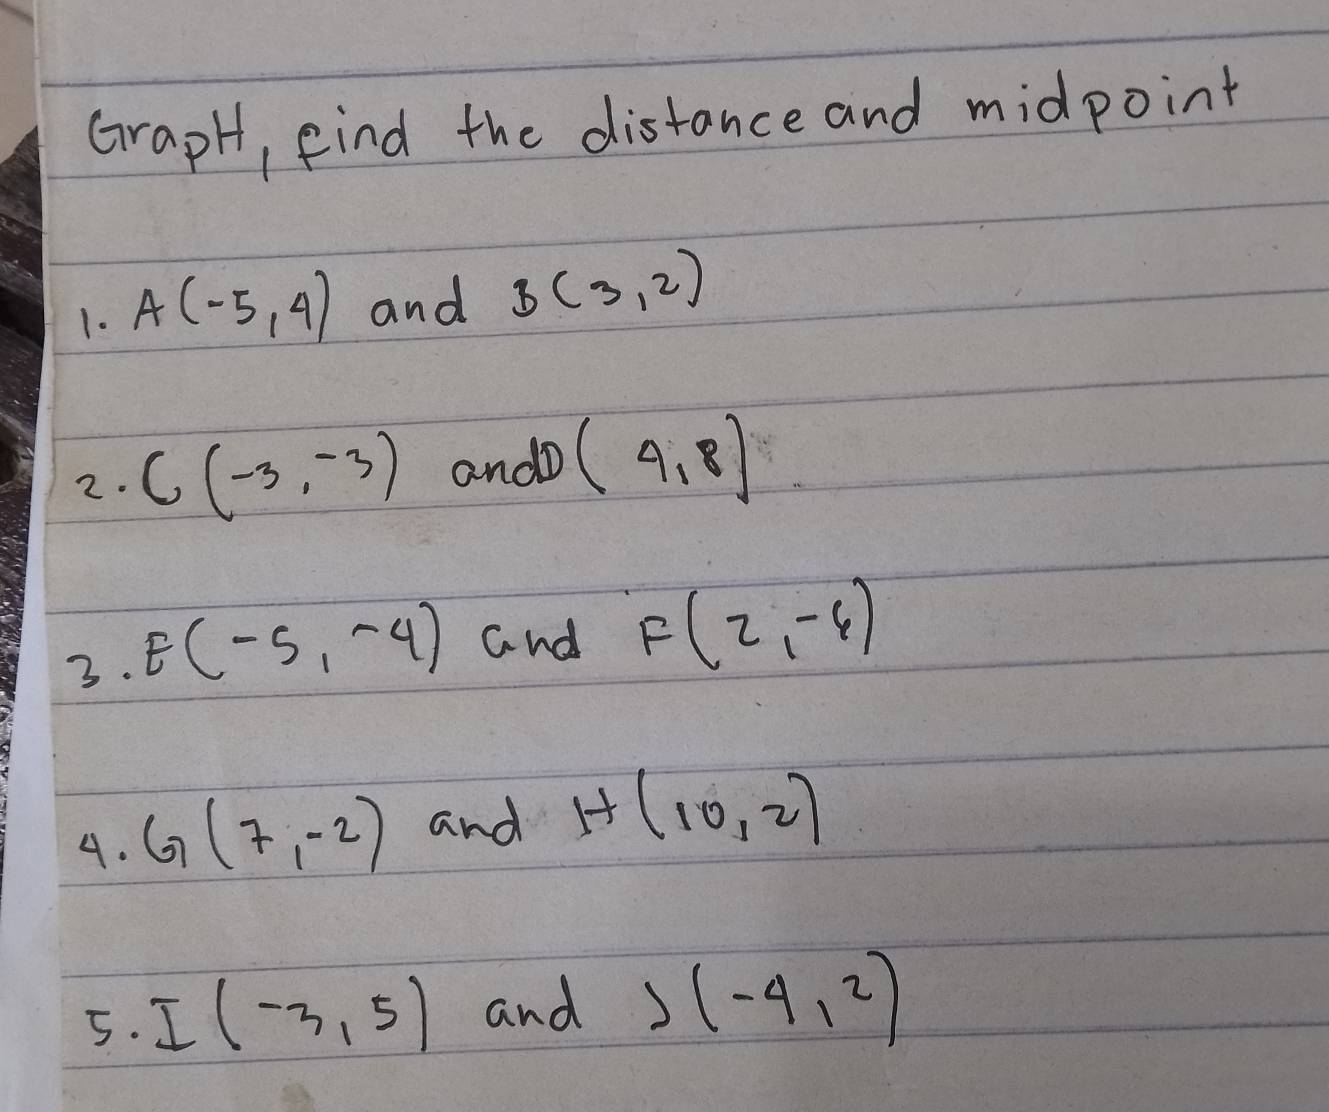 GrapH, find the distance and midpoint
1. A(-5,4) and B(3,2)
2. C(-3,-3) and D(4,8)
3. E(-5,-4) and F(2,-6)
4. G(7,-2) and H(10,2)
5. I(-3,5) and J(-4,2)